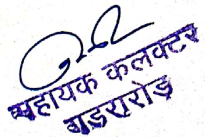 सहायक कलक्टर
गडरारोड